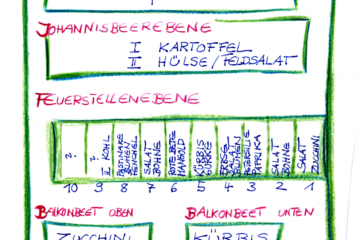 JOHANNISBEEREBENE
I KARTOFFEL
II HÜLSE/FELDSALAT
FEUERSTELLENEBENE
?
?
II KOHL
PASTINAKE
BLUMEN
FENCHEL
SALAT
BOHNE
ROTE BETE
MANGOLD
KÜRBIS
GURKE
ERBSE
BLUMEN
PETERSILIE
PAPRIKA
SALAT
BOHNE
SALAT
ZUCCHINI
10 9 8 7 6 5 4 3 2 1
BALKONBEET OBEN BALKONBEET UNTEN
ZUCCHINI KÜRBIS